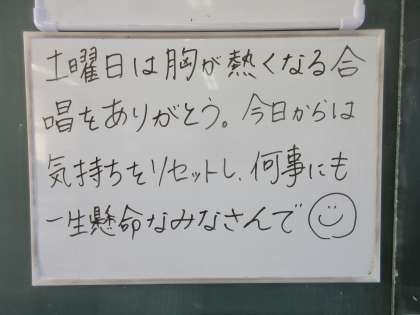 土曜日は胸が熱くなる合
唱をありがとう。今日からは
気持ちをリセットし、何事にも
一生懸命なみなさんで